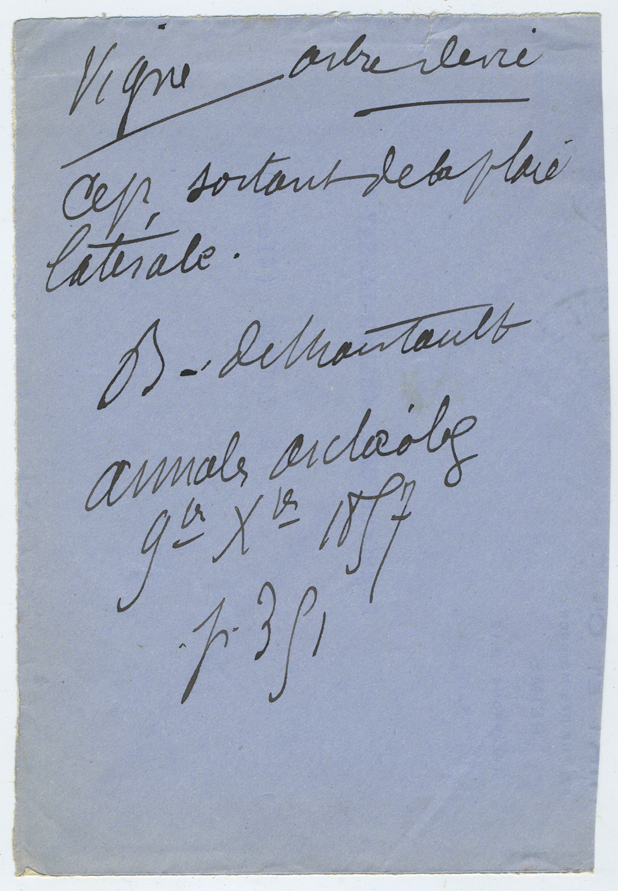 Vigne arbre de vie
Cep sortant de la plaie
latérale.
B - de Montault
annales archéolog
9bre Xbre 1857
p. 351